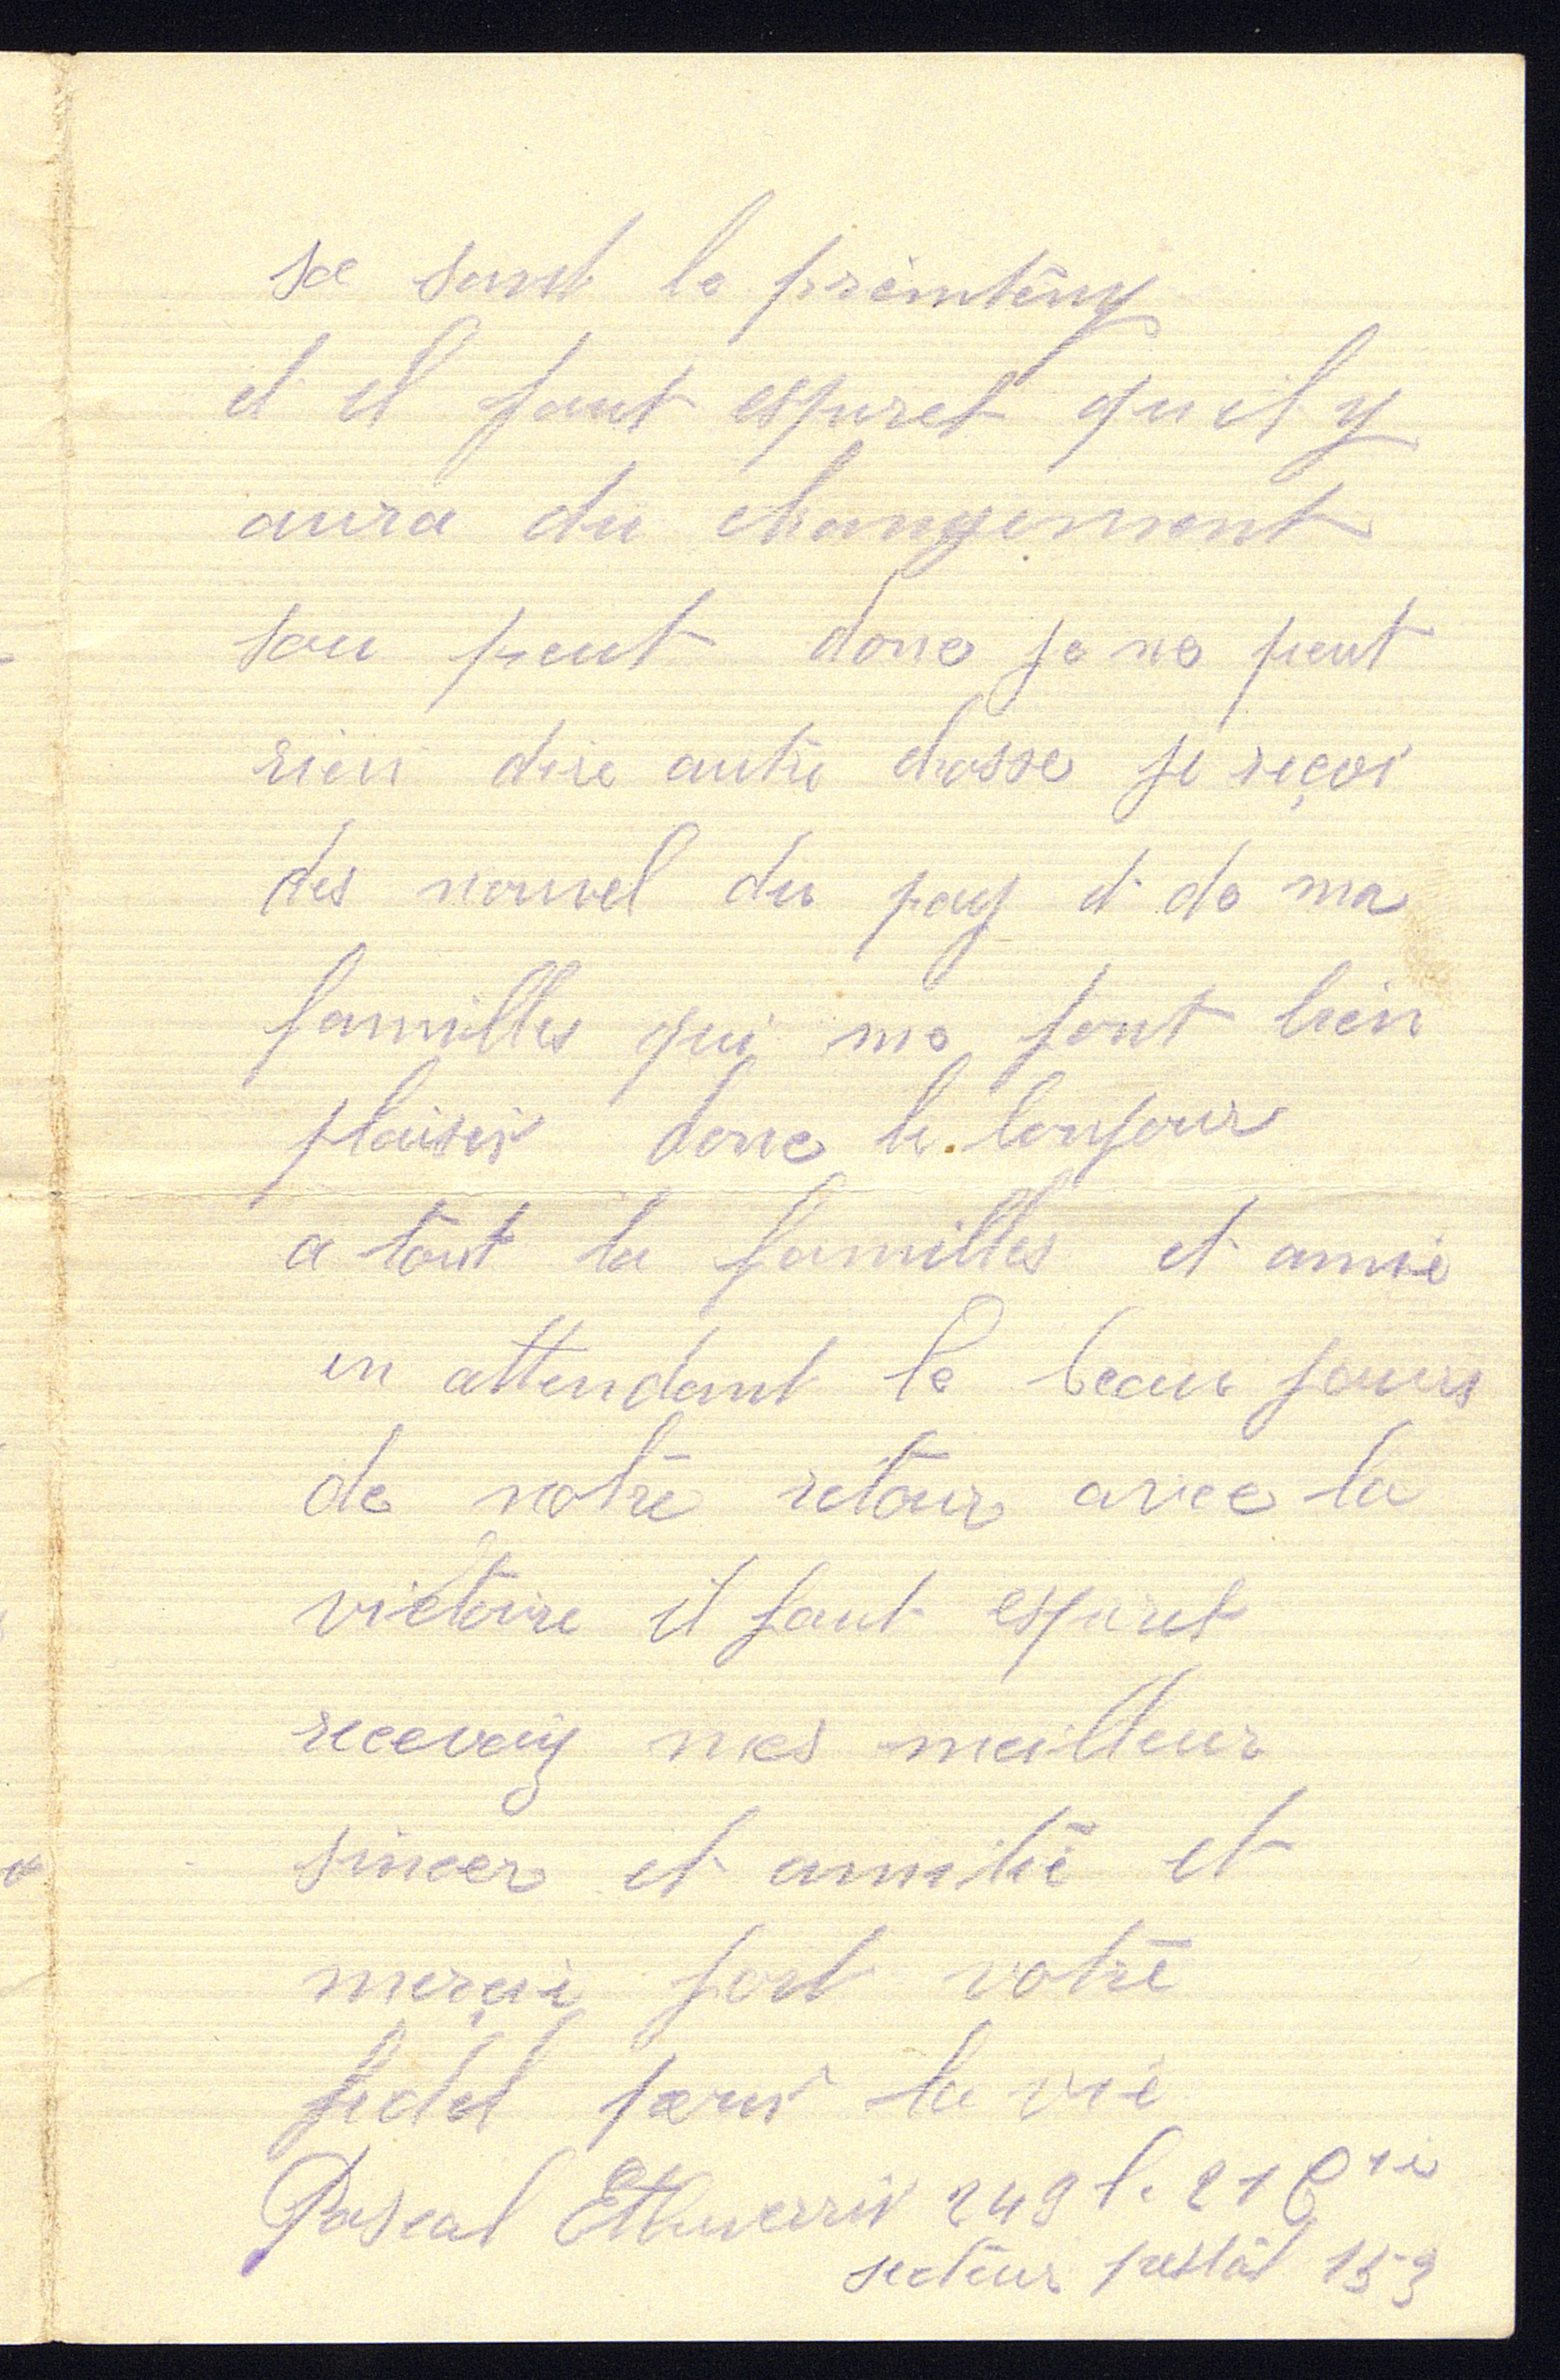 sa sant le printemy
et il faut esperet quil y
aura du changement
sou peut donc je ne peut
rien dire autre chosse je reçoi
des nouvel du pay et de ma
familles qui me font bien
plaisir donc le bonjour
a tout la familles et amie
en attendant le beau jours
de notre retour avec la
victoire il faut esperet
recevaiy mes meilleur
sincer et amitié et
merçie fort votre
fidel pour la vie
Pascal 249 21 Cie
secteur postal 153